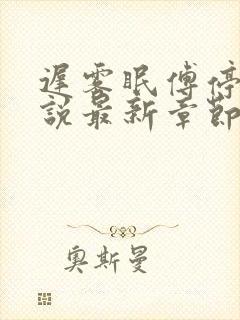 遲雾眠傅停
說最新章節
奧斯曼